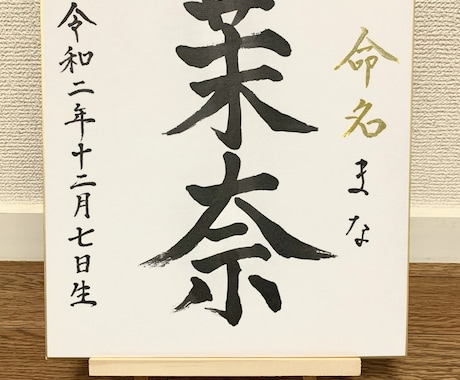 命名 まな
茉奈
令和二年十二月七日生